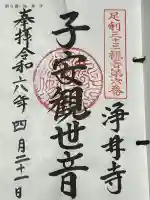 足利三十三観音第六番
浄井寺
子安観世音
奉拝 令和六年四月二十一日